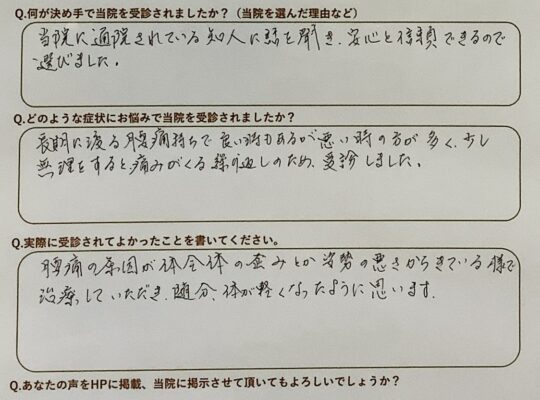 Q.何が決め手で当院を受診されましたか？（当院を選んだ理由など）
当院に通院されている知人に話を聞き、安心と信頼できるので
選びました。
Q.どのような症状にお悩みで当院を受診されましたか？
長期に渡る腰痛持ちで良い時もあるが悪い時の方が多く、少し
無理をすると痛みがくる繰り返しのため、受診しました。
Q.実際に受診されてよかったことを書いてください。
腰痛の原因が体全体の歪みとか姿勢の悪さからきている様で
治療していただき、随分、体が軽くなったように思います。
Q.あなたの声をHPに掲載、当院に掲示させて頂いてもよろしいでしょうか？